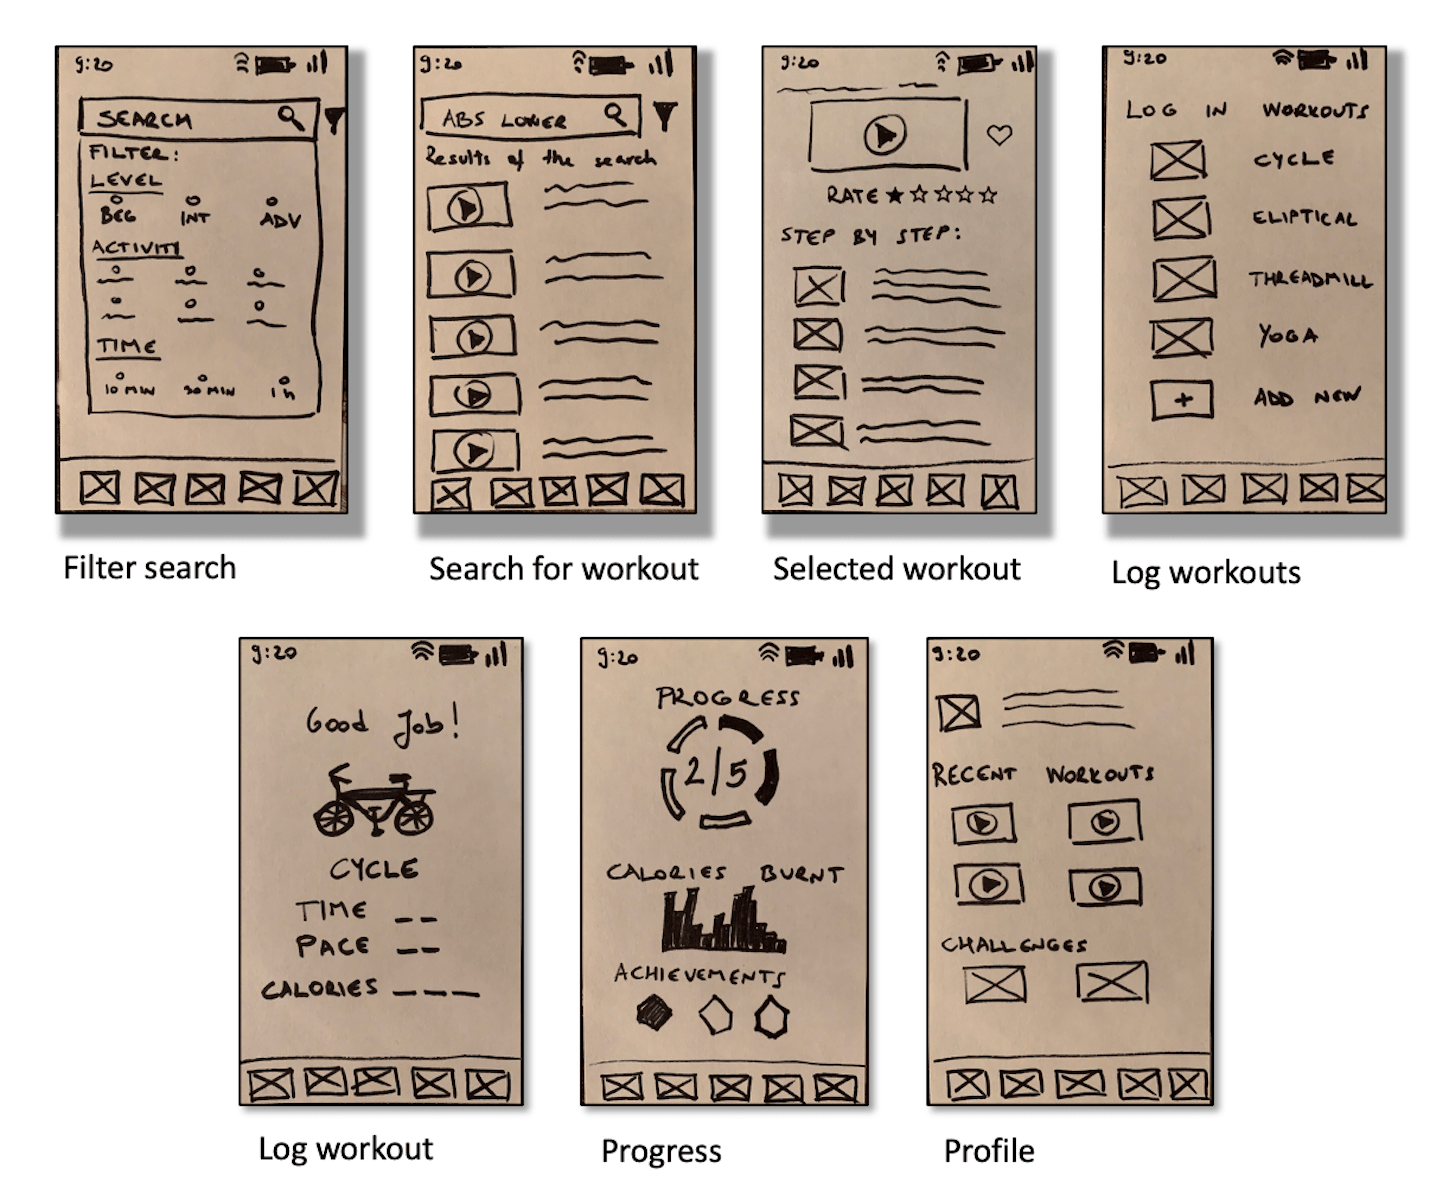 9:20
SEARCH
FILTER:
LEVEL
BEG INT ADV
ACTIVITI
TIME
10 MIN 30 MIN 1 h
Filter search
9:20
ABS LOWER
Results of the search
Search for workout
9:20
RATE
STEP BY STEP:
Selected workout
9:20
LOG IN WORKOUTS
CYCLE
ELIPTICAL
THREADMILL
YOGA
ADD NEW
Log workouts
9:20
Good Job!
CYCLE
TIME _ _
PACE _ _
CALORIES _ _ _
Log workout
9:20
PROGRESS
2/5
CALORIES BURNT
ACHIEVEMENTS
Progress
9:20
RECENT WORKOUTS
CHALLENGES
Profile